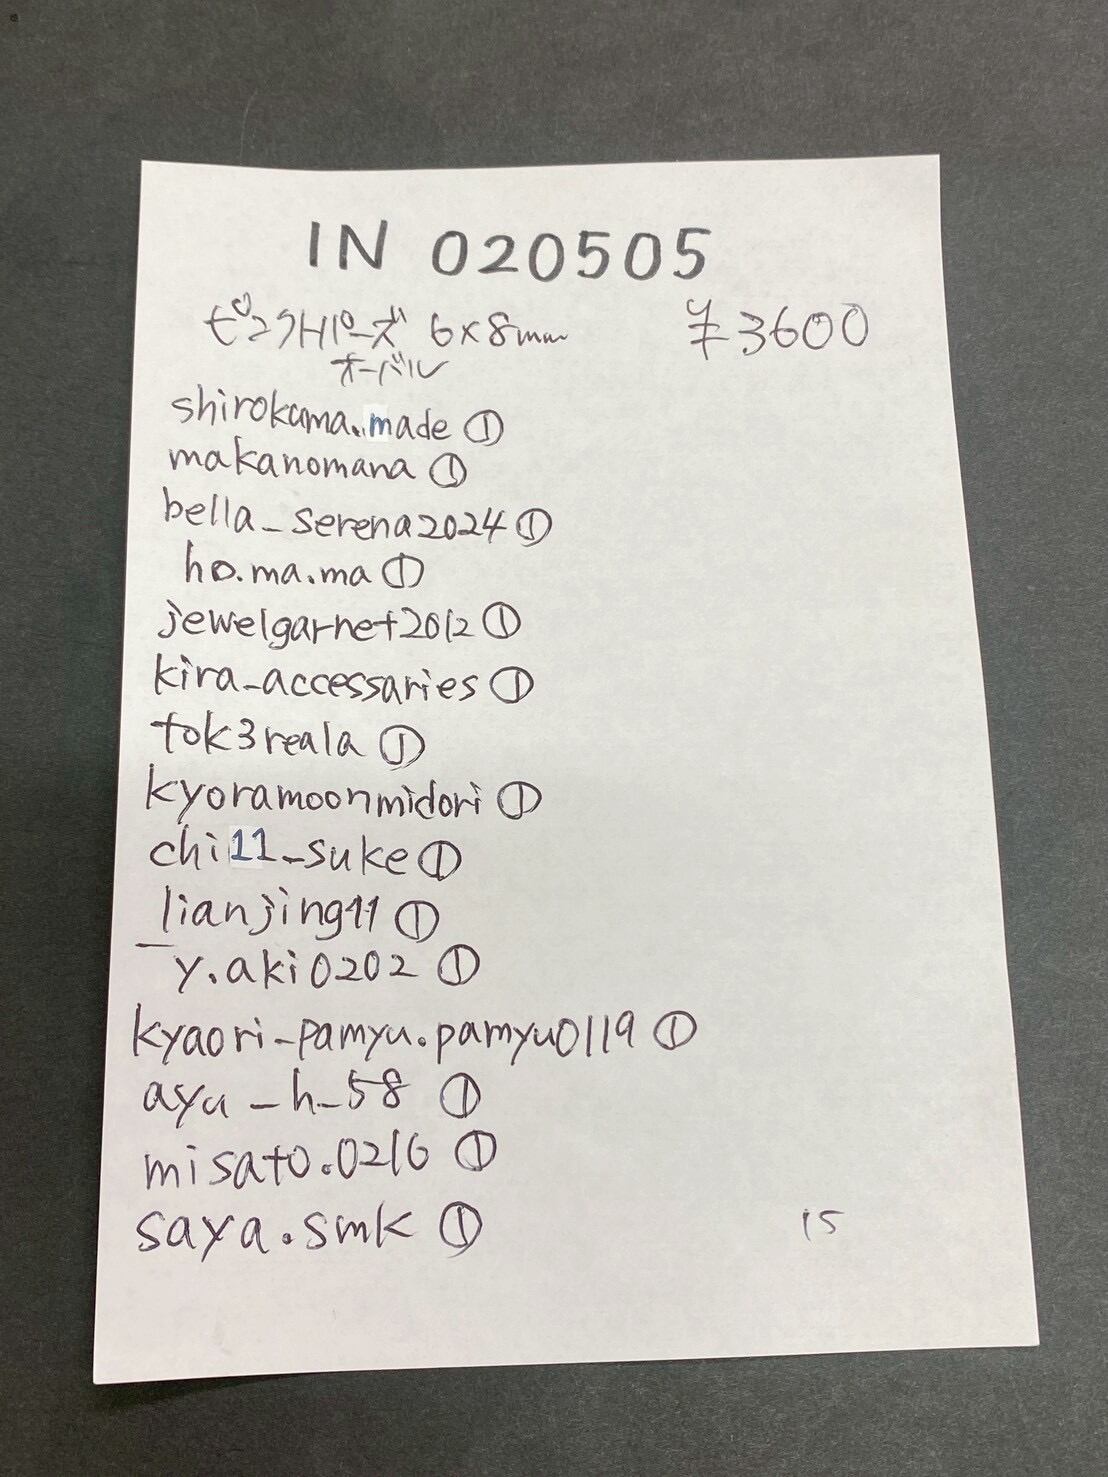 IN 020505
ピンクトパーズ 6×8mm ¥3600
オーバル
shirokuma.made ①
makanomana ①
bella_serena2024 ①
ho.ma.ma ①
jewelgarnet2012 ①
kira_accessaries ①
tok3reala ①
kyoramoonmidori ①
chi11_suke ①
lianjing11 ①
_y.aki0202 ①
kyaori_pamyu.pamyu0119 ①
aya_h_58 ①
misato.0216 ①
saya.smk ①
15